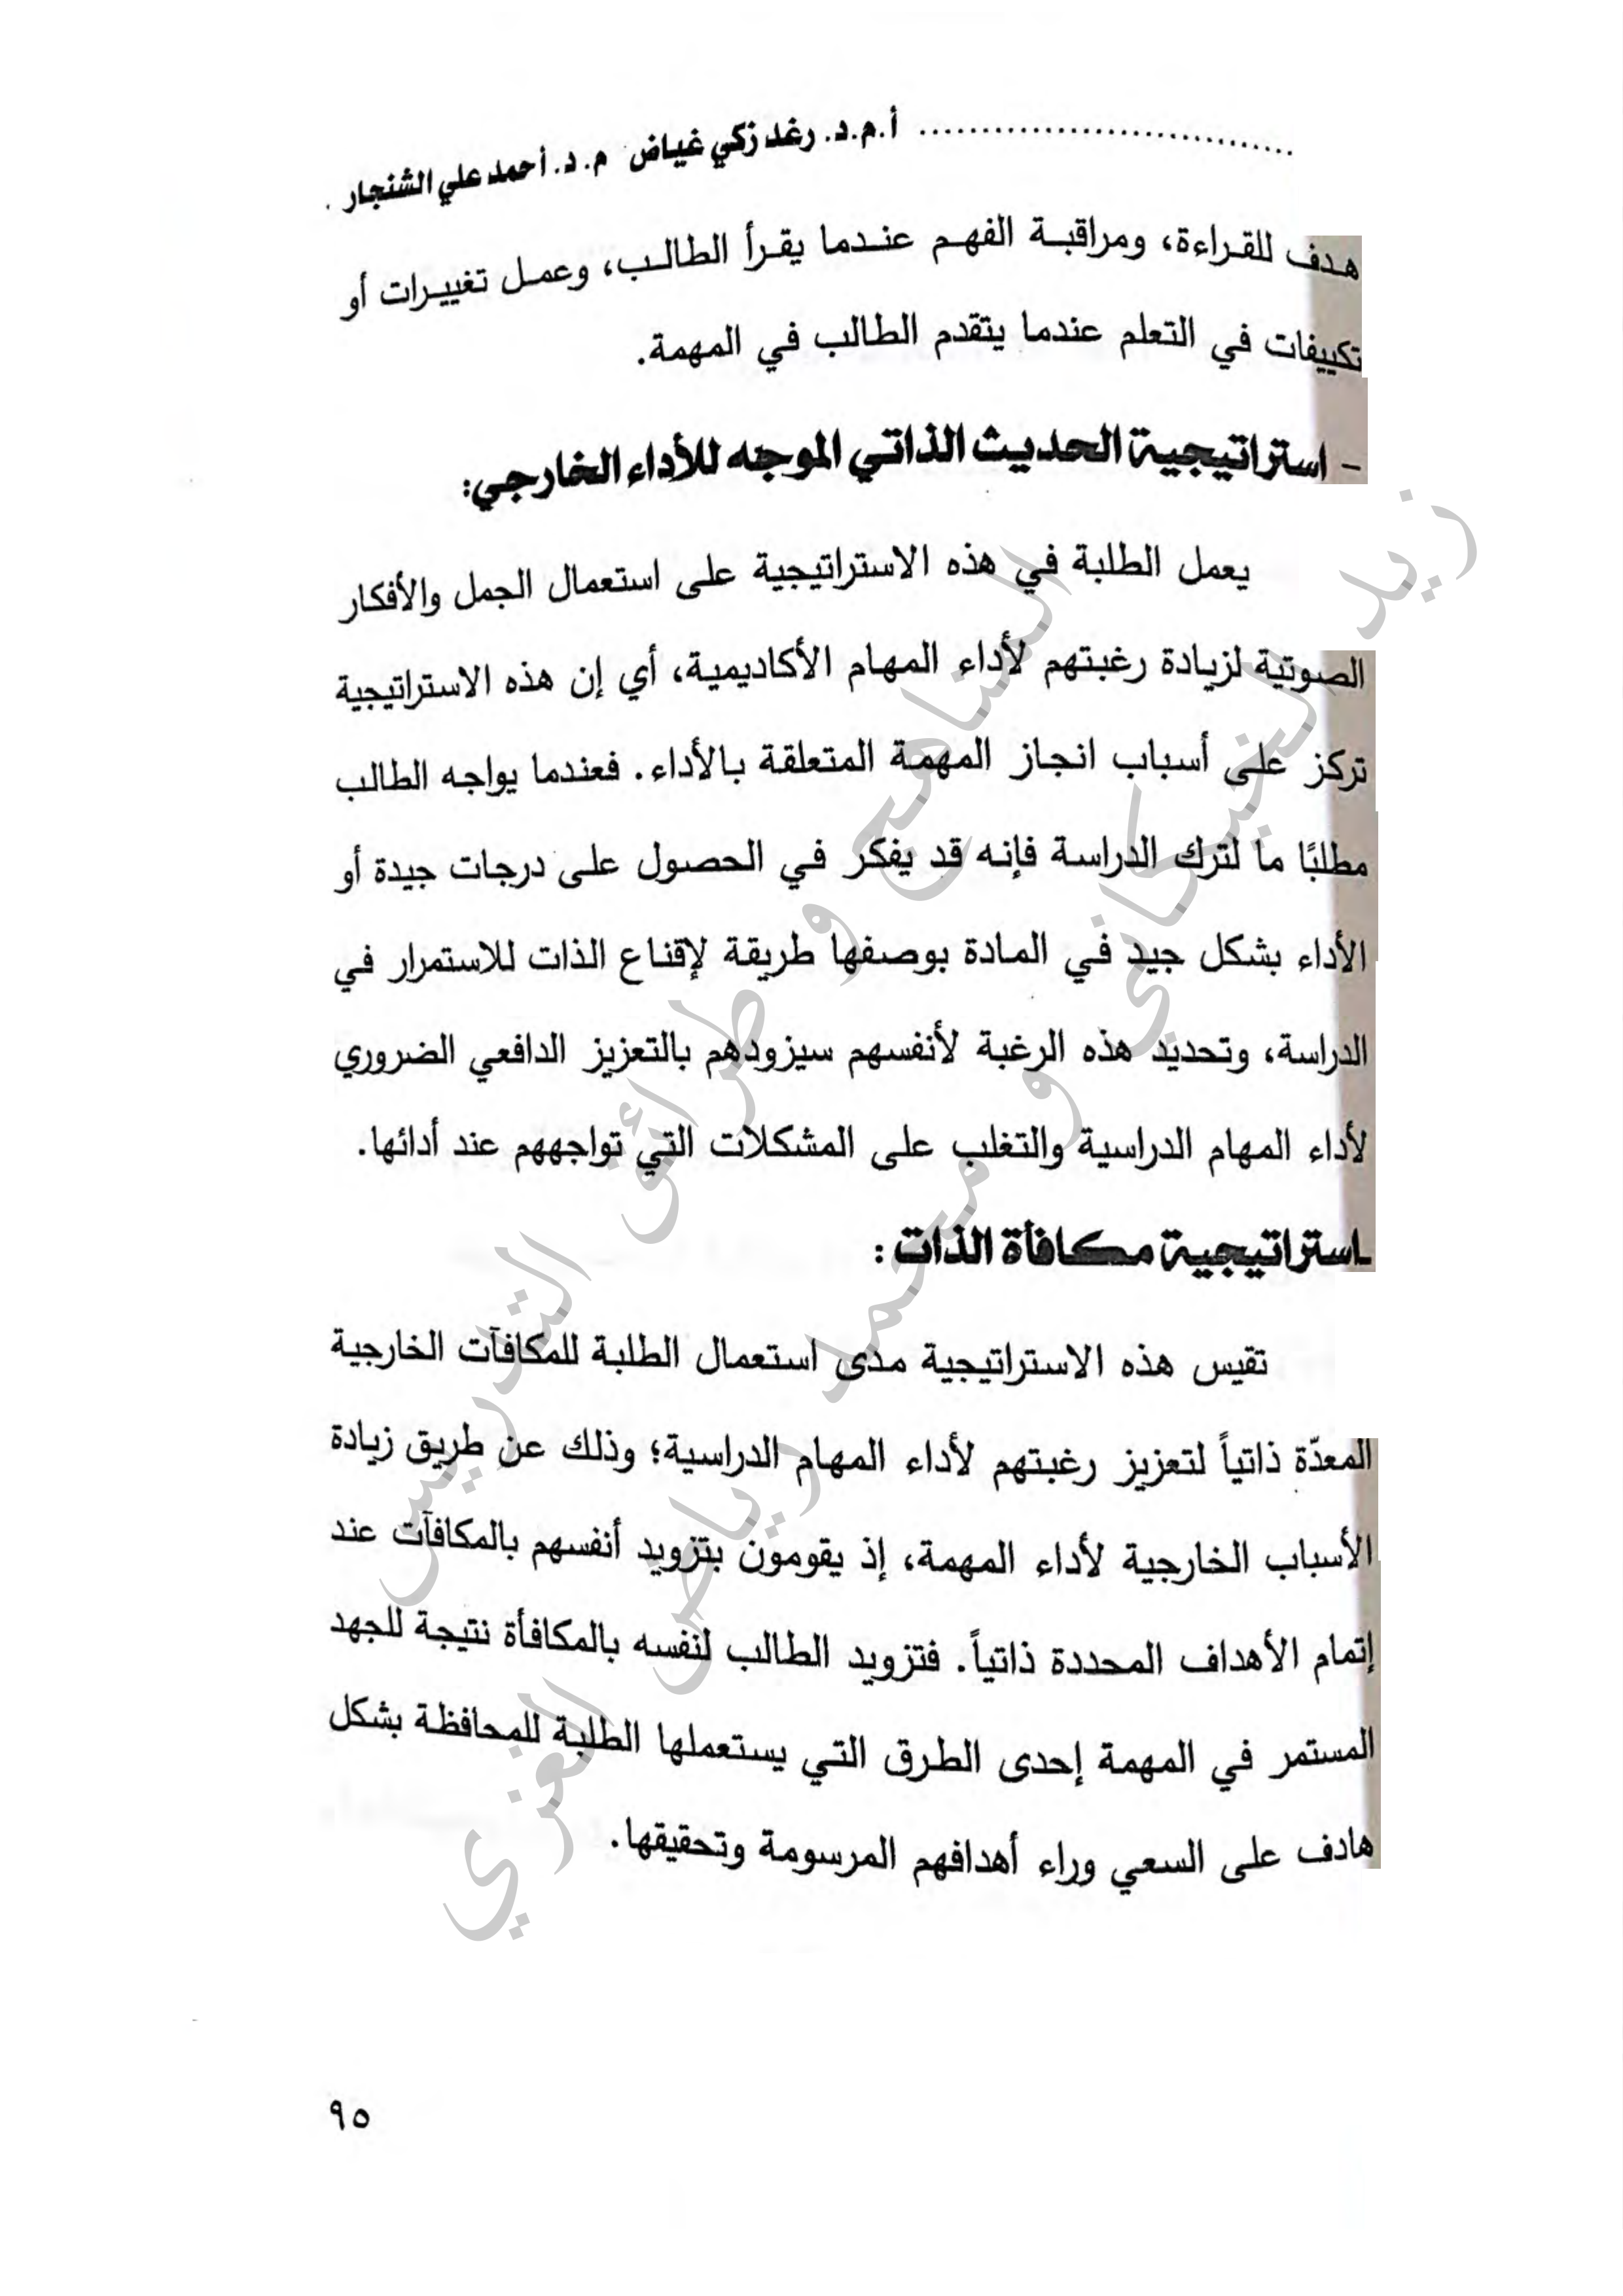 أ.م.د. رغد زكي غياض م. د. أحمد علي الشنجار
هدف للقراءة، ومراقبة الفهم عندما يقرأ الطالب، وعمل تغييرات أو
تكييفات في التعلم عندما يتقدم الطالب في المهمة.
- استراتيجية الحديث الذاتي الموجه للأداء الخارجي:
يعمل الطلبة في هذه الاستراتيجية على استعمال الجمل والأفكار
الصوتية لزيادة رغبتهم لأداء المهام الأكاديمية، أي إن هذه الاستراتيجية
تركز على أسباب انجاز المهمة المتعلقة بالأداء. فعندما يواجه الطالب
مطلبًا ما لترك الدراسة فإنه قد يفكر في الحصول على درجات جيدة أو
الأداء بشكل جيد في المادة بوصفها طريقة لإقناع الذات للاستمرار في
الدراسة، وتحديد هذه الرغبة لأنفسهم سيزودهم بالتعزيز الدافعي الضروري
لأداء المهام الدراسية والتغلب على المشكلات التي تواجههم عند أدائها.
ـاستراتيجية مكافأة الذات :
تقيس هذه الاستراتيجية مدى استعمال الطلبة للمكافآت الخارجية
المعدّة ذاتياً لتعزيز رغبتهم لأداء المهام الدراسية؛ وذلك عن طريق زيادة
الأسباب الخارجية لأداء المهمة، إذ يقومون بتزويد أنفسهم بالمكافآت عند
إتمام الأهداف المحددة ذاتياً. فتزويد الطالب لنفسه بالمكافأة نتيجة للجهد
المستمر في المهمة إحدى الطرق التي يستعملها الطلبة للمحافظة بشكل
هادف على السعي وراء أهدافهم المرسومة وتحقيقها.
٩٥
المناهج و طرائق التدريس
زيد الخيكاني و محمد رياض الغزي